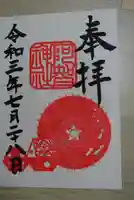 奉拝
神社
令和三年七月二十八日